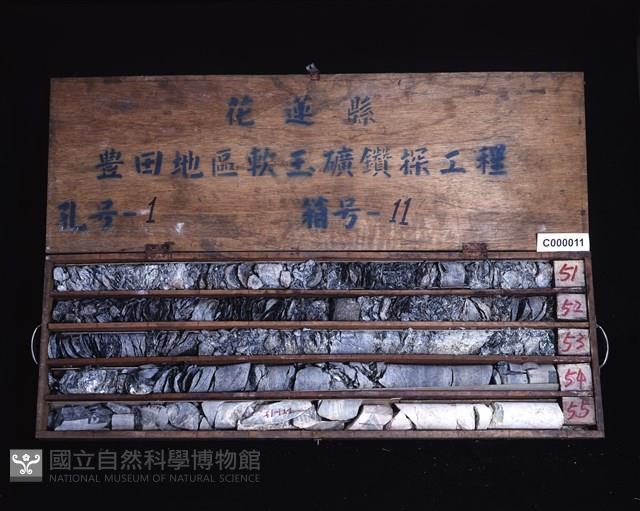 花蓮縣
豊田地區軟玉礦鑽探工程
孔号-1 箱号-11
C000011
51
52
53
54
55
國立自然科學博物館
NATIONAL MUSEUM OF NATURAL SCIENCE